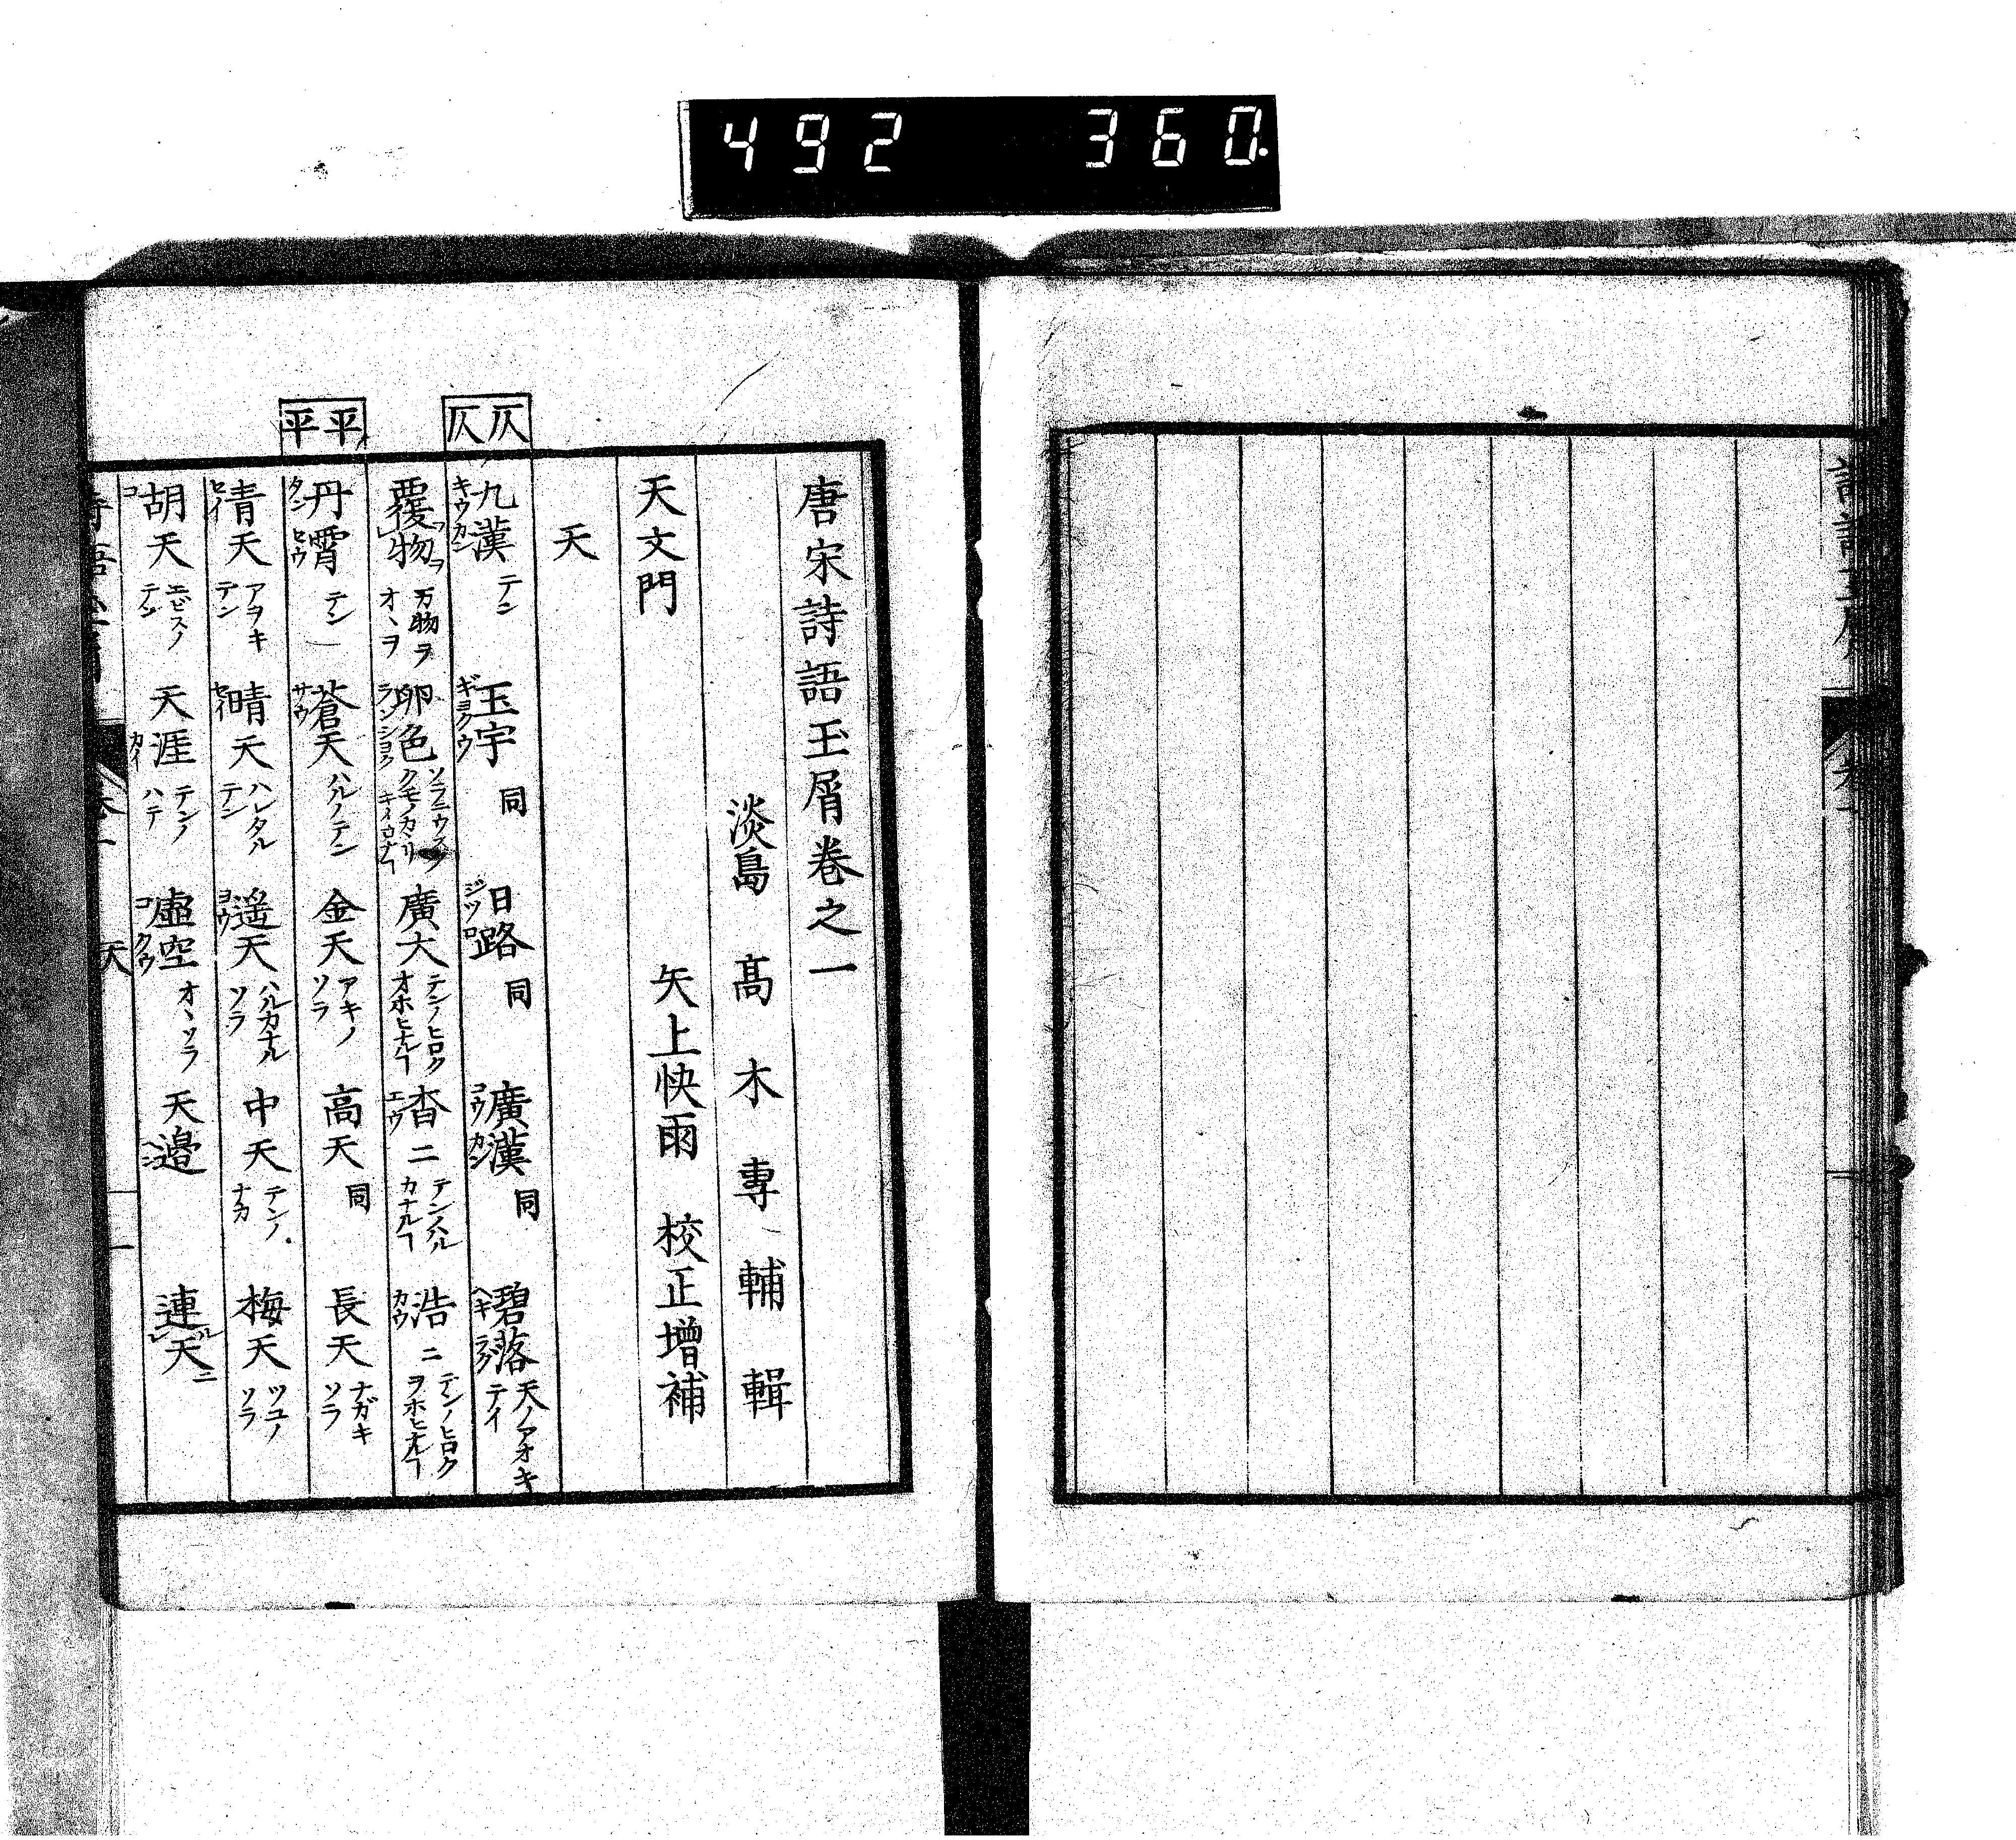 492 360.
唐宋詩語玉屑巻之一
淡島 髙木專輔輯
矢上快雨 校正增補
天文門
天
仄仄
九漢 キウカン テン 玉宇 ギヨクウ 同 日路 ジツロ 同 廣漢 コウカン 同 碧落 ヘキラク 天ノアオキテイ
覆物 フヲ 万物ヲオヽヲ 卵色 ランシヨク 廣大 テンノヒロクオホヒナルヿ 杳ニ エウ テンノハルカナルヿ 浩ニ カウ テンノヒロクヲホヒナルヿ
平平
丹霄 タンセウ テン 蒼天 サウ ハルノテン 金天 アキノソラ 高天 同 長天 ナガキソラ
青天 セイ アヲキテン 晴天 セイ ハレタルテン 遥天 ヨウ ハルカナルソラ 中天 テンノナカ 梅天 ツユノソラ
胡天 コ エビスノテン 天涯 カイ テンノハテ 虚空 コクウ オヽソラ 天邉 ヘン 連天 ルレニ
天 一